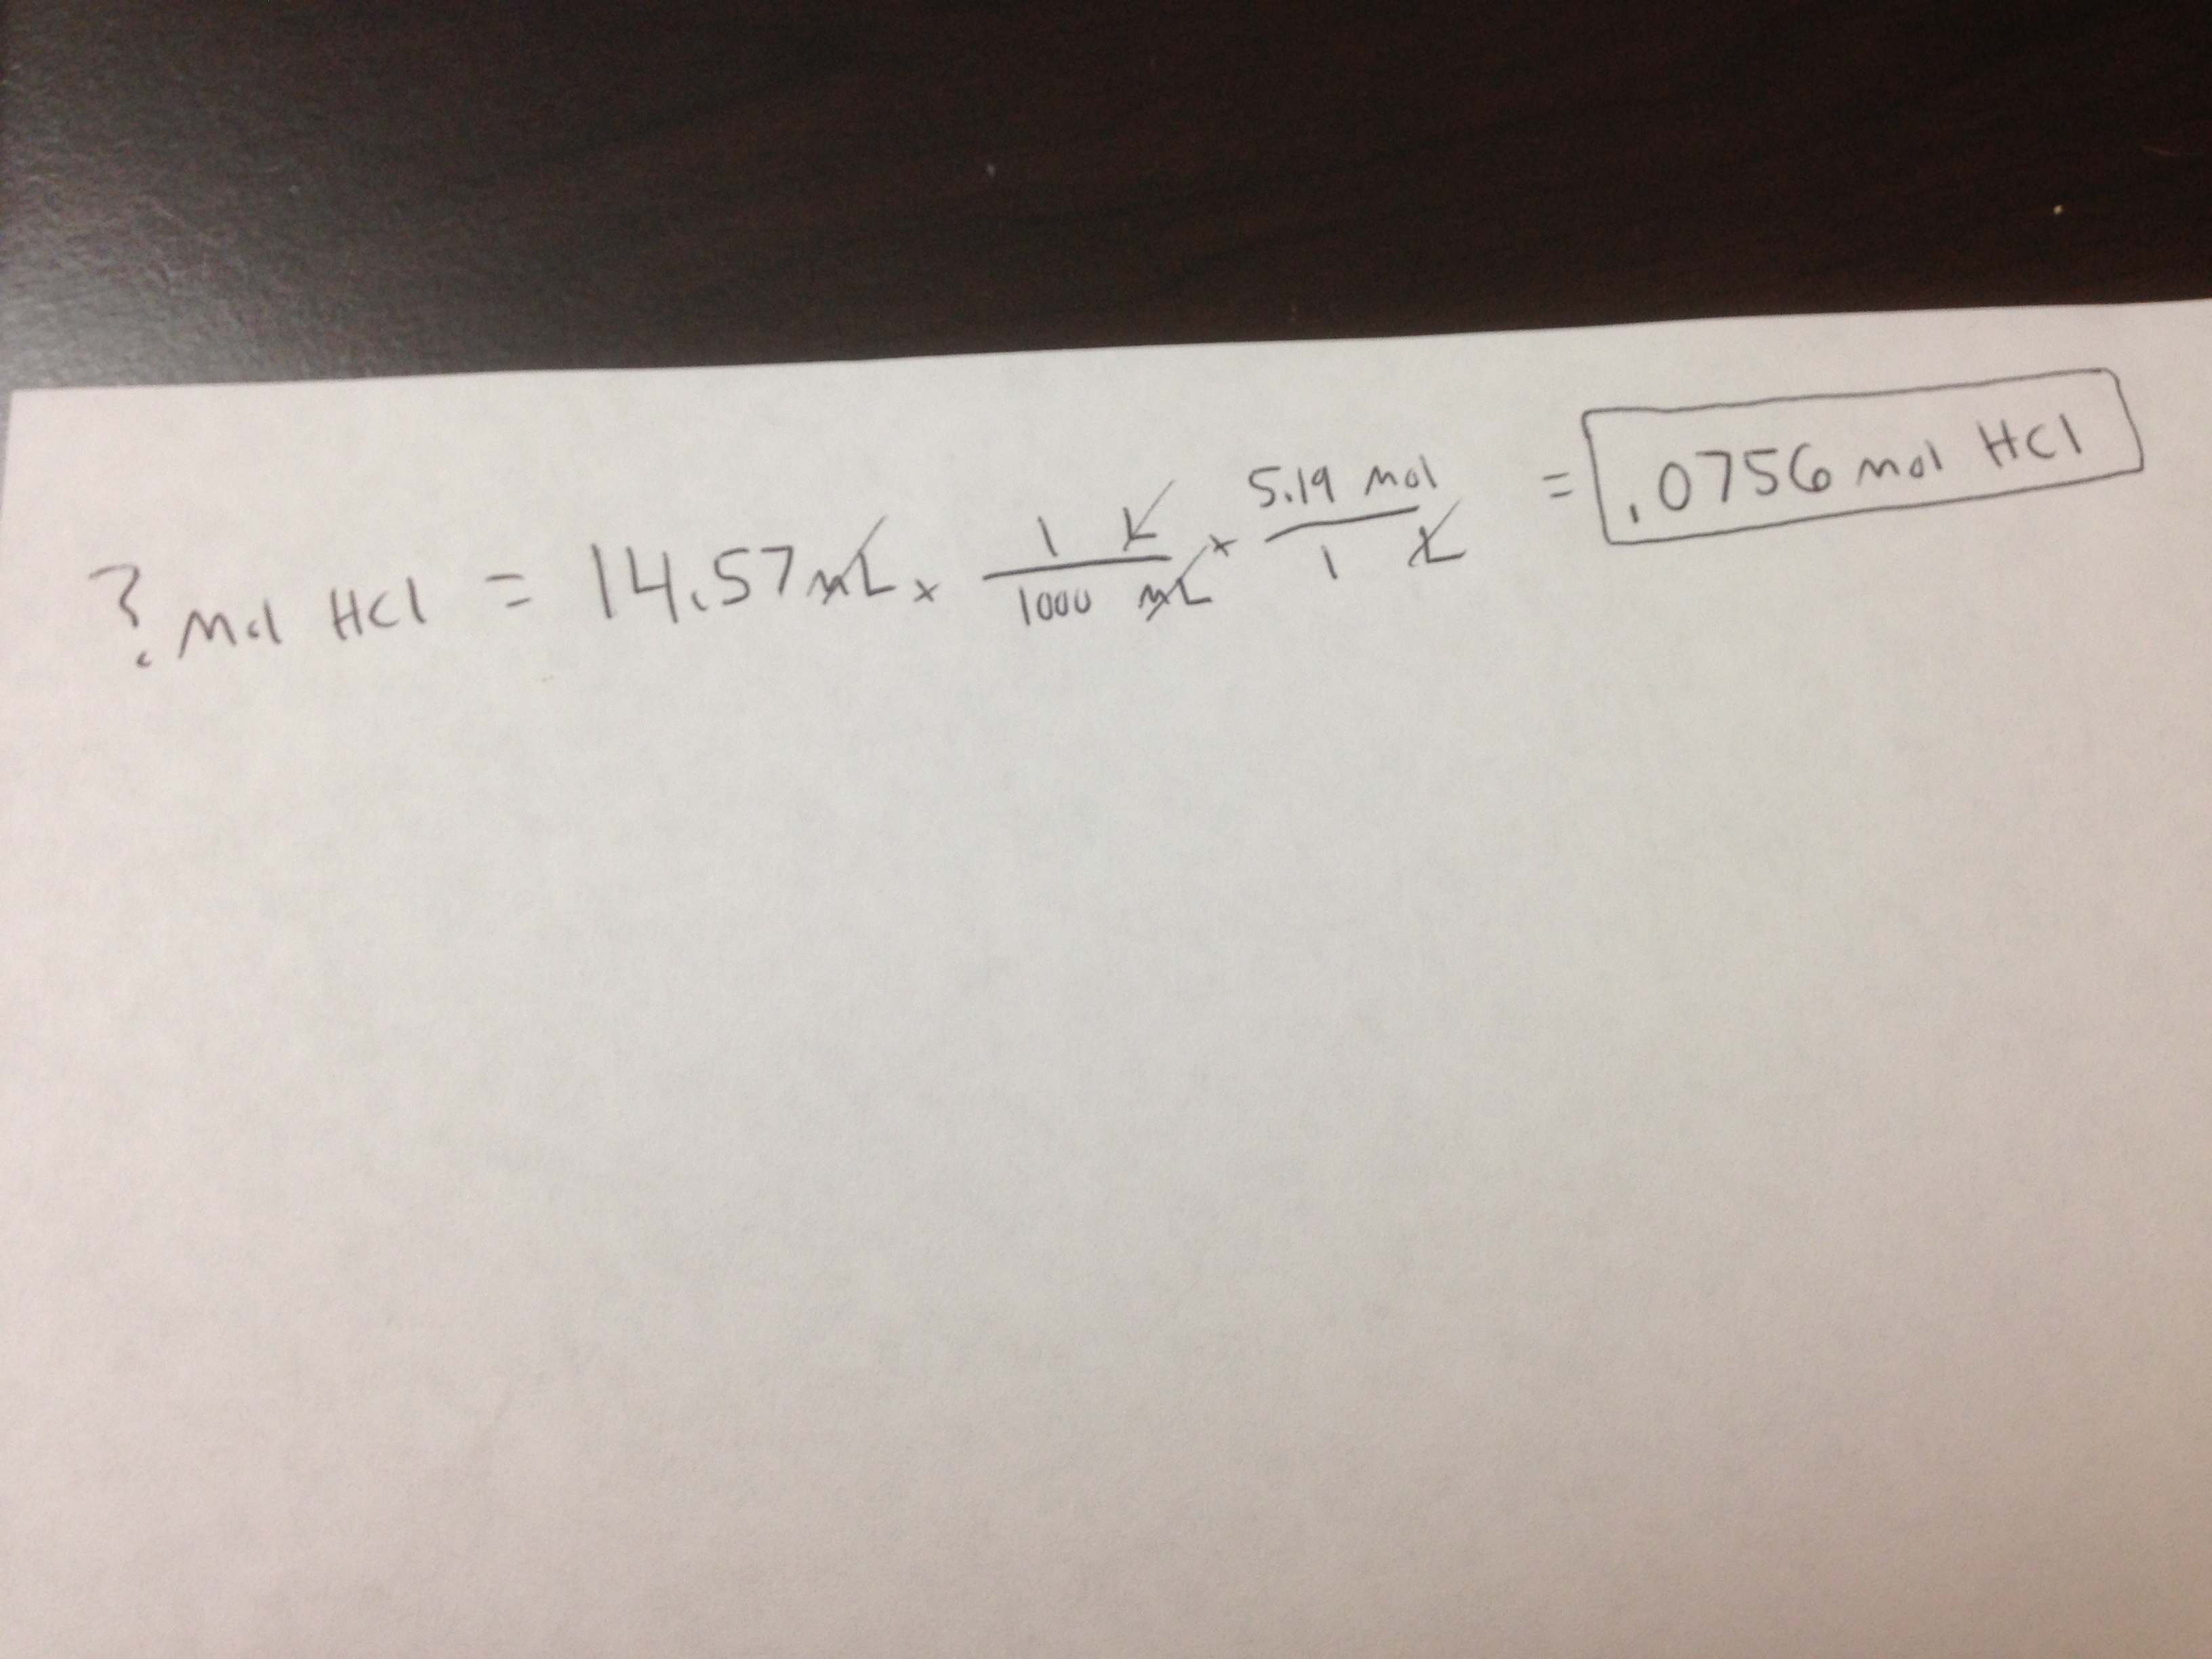 ? mol HCl = 14.57 mL x 1 L / 1000 mL x 5.19 mol / 1 L = .0756 mol HCl